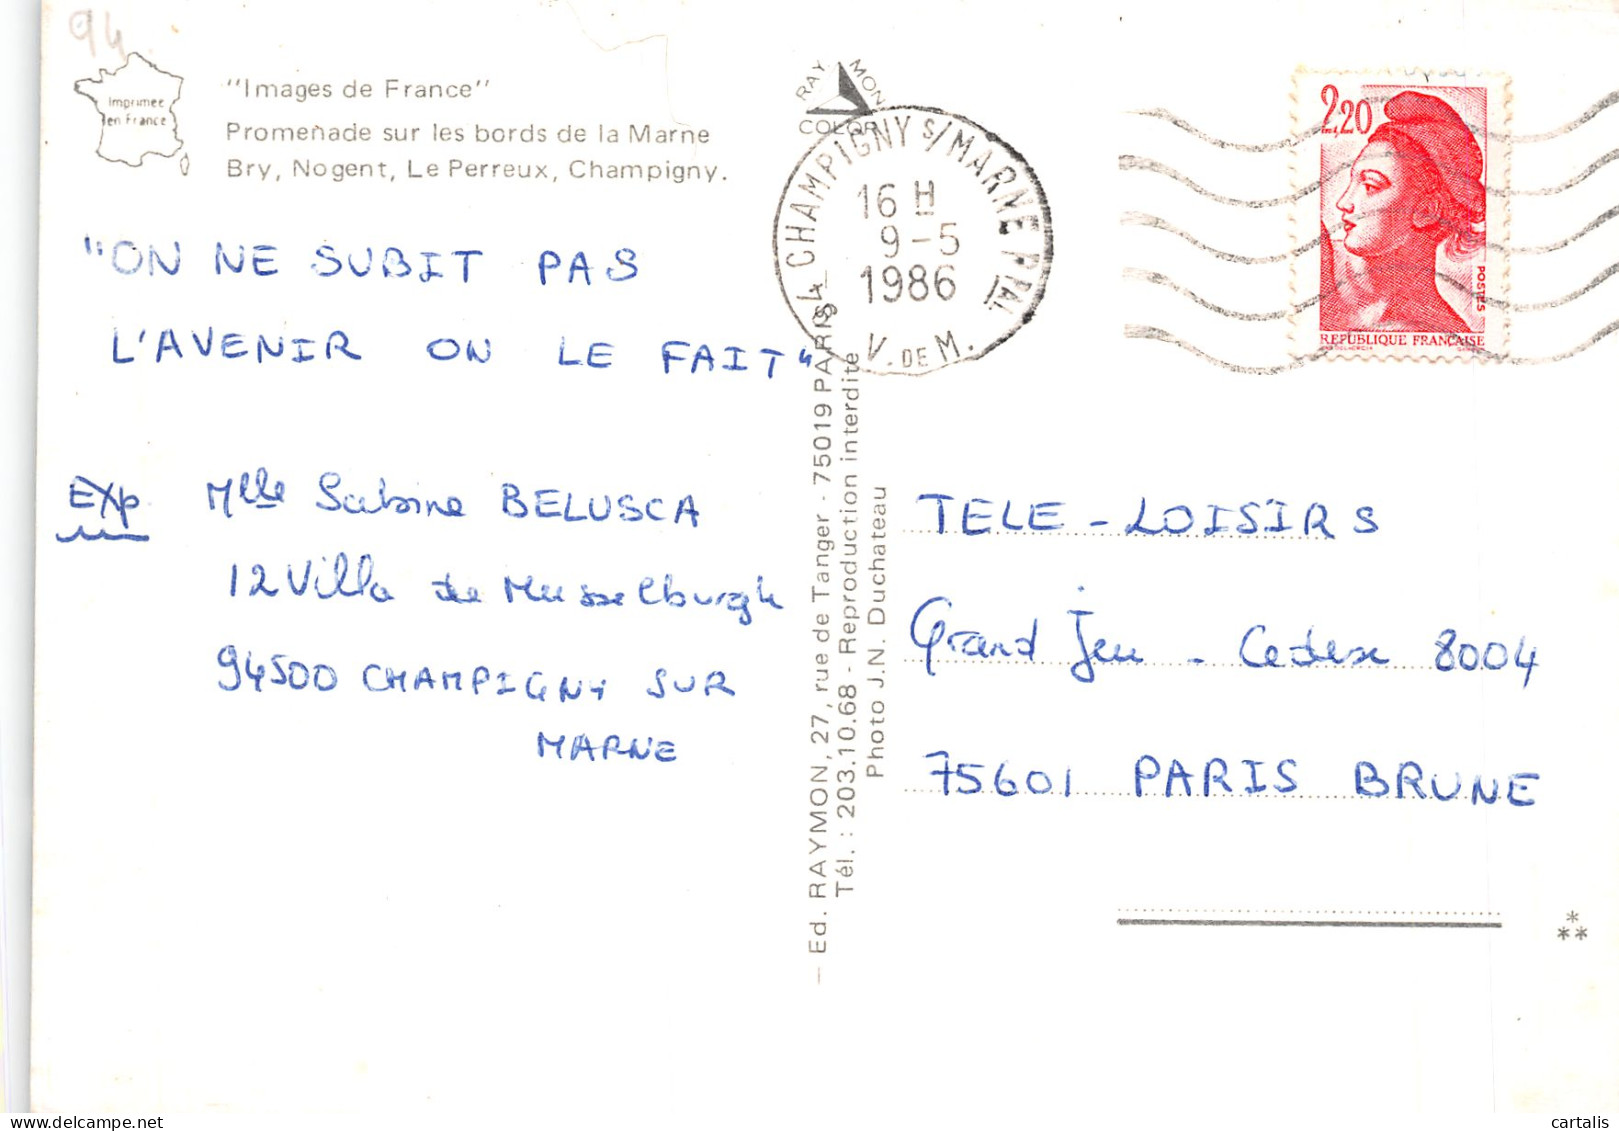 94
Imprimée
en France
"Images de France"
Promenade sur les bords de la Marne
Bry, Nogent, Le Perreux, Champigny.
"ON NE SUBIT PAS
L'AVENIR ON LE FAIT"
Exp Mlle Sabine BELUSCA
12 Villa de Musselburgh
94500 CHAMPIGNY SUR
MARNE
RAYMON
COLOR
94 CHAMPIGNY S/MARNE PPAL
16 H
9-5
1986
V. DE M.
2,20
POSTES
REPUBLIQUE FRANÇAISE
Ed. RAYMON, 27, rue de Tanger - 75019 PARIS
Tél. : 203.10.68 - Reproduction interdite
Photo J.N. Duchateau
TELE - LOISIRS
Grand Jeu - Cedex 8004
75601 PARIS BRUNE
cartalis
delcampe.net